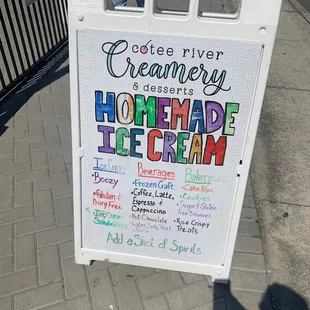 cotee river
Creamery
& desserts
HOMEMADE
ICE CREAM
Ice Cream
• Boozy
• Gluten &
Dairy Free
• Ice Cream
Sandwiches
Beverages
• Frozen Craft
• Coffee, Latte,
Espresso &
Cappuccino
• Hot Chocolate
Water, Soda, Tea
Bakery
• Cake Pops
• Cookies
• Gluten
Free Brownies
• Rice Crispy
Treats
Add a Shot of Spirits